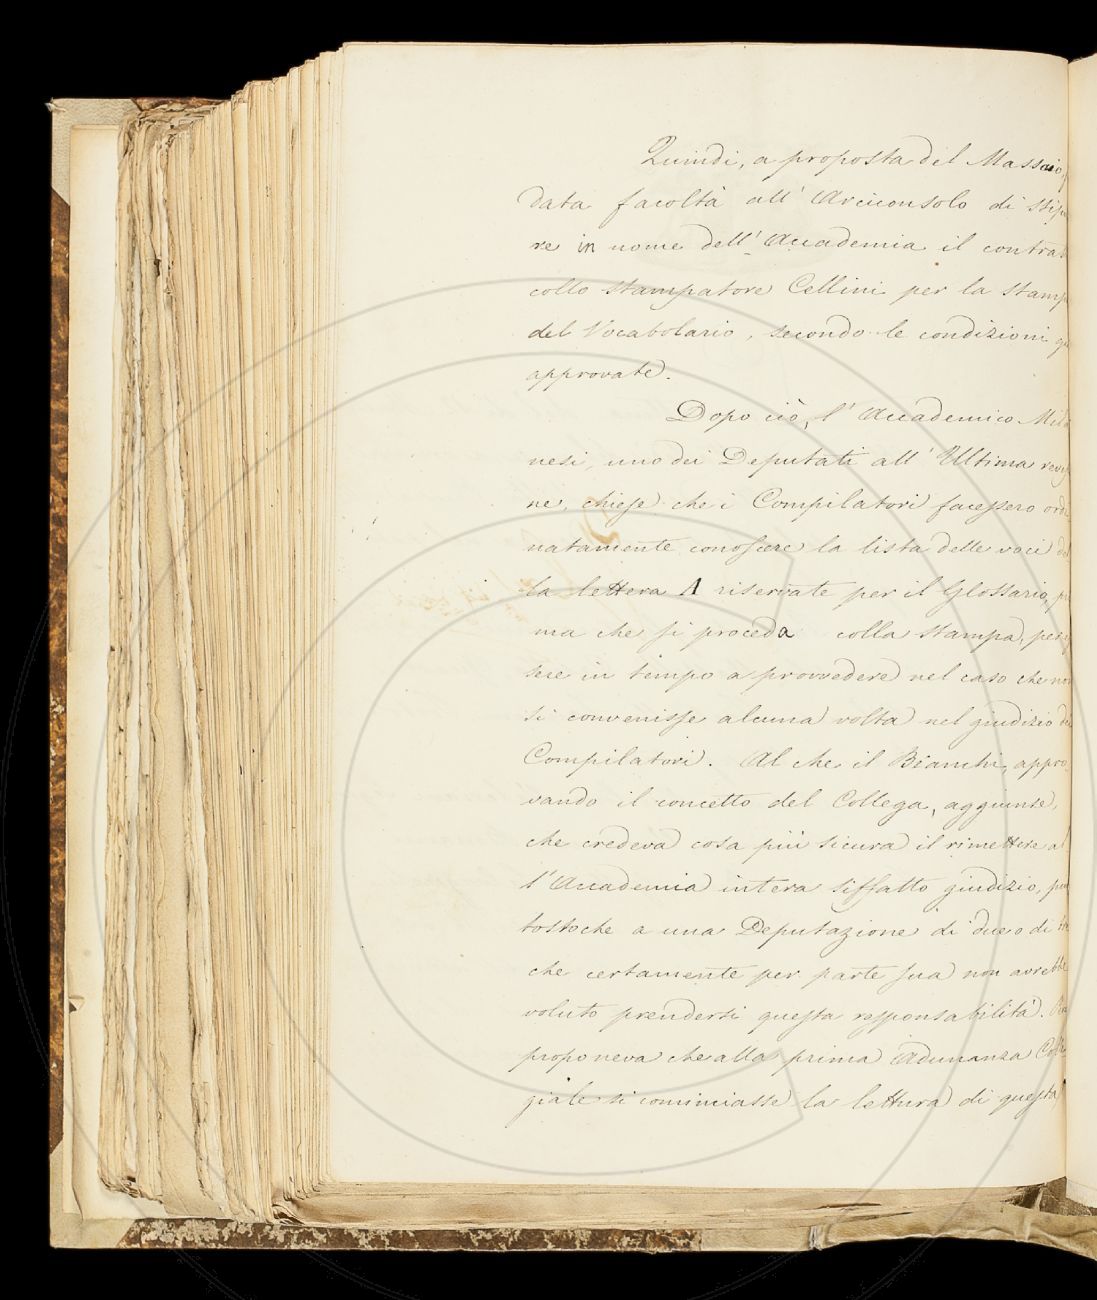 Quindi, a proposta del Massaio,
data facoltà all'Arciconsolo di stip
re in nome dell'Accademia il contrat
collo stampatore Cellini per la stamp
del Vocabolario, secondo le condizioni
approvate.
Dopo ciò, l'Accademico Mila
nesi, uno dei Deputati all'Ultima revis
ne, chiese che i Compilatori facessero ordi
natamente conoscere la lista delle voci del
la lettera A riservate per il Glossario, pri
ma che si proceda colla stampa, per es
sere in tempo a provvedere nel caso che non
si convenisse alcuna volta nel giudizio de
Compilatori. Al che il Bianchi, appro-
vando il concetto del Collega, aggiunse,
che credeva cosa più sicura il rimettere al
l'Accademia intera siffatto giudizio, piut
tostoche a una Deputazione di due o di tre
che certamente per parte sua non avrebbe
voluto prendersi questa responsabilità.
proponeva che alla prima Adunanza Colle
giale si cominciasse la lettura di questa